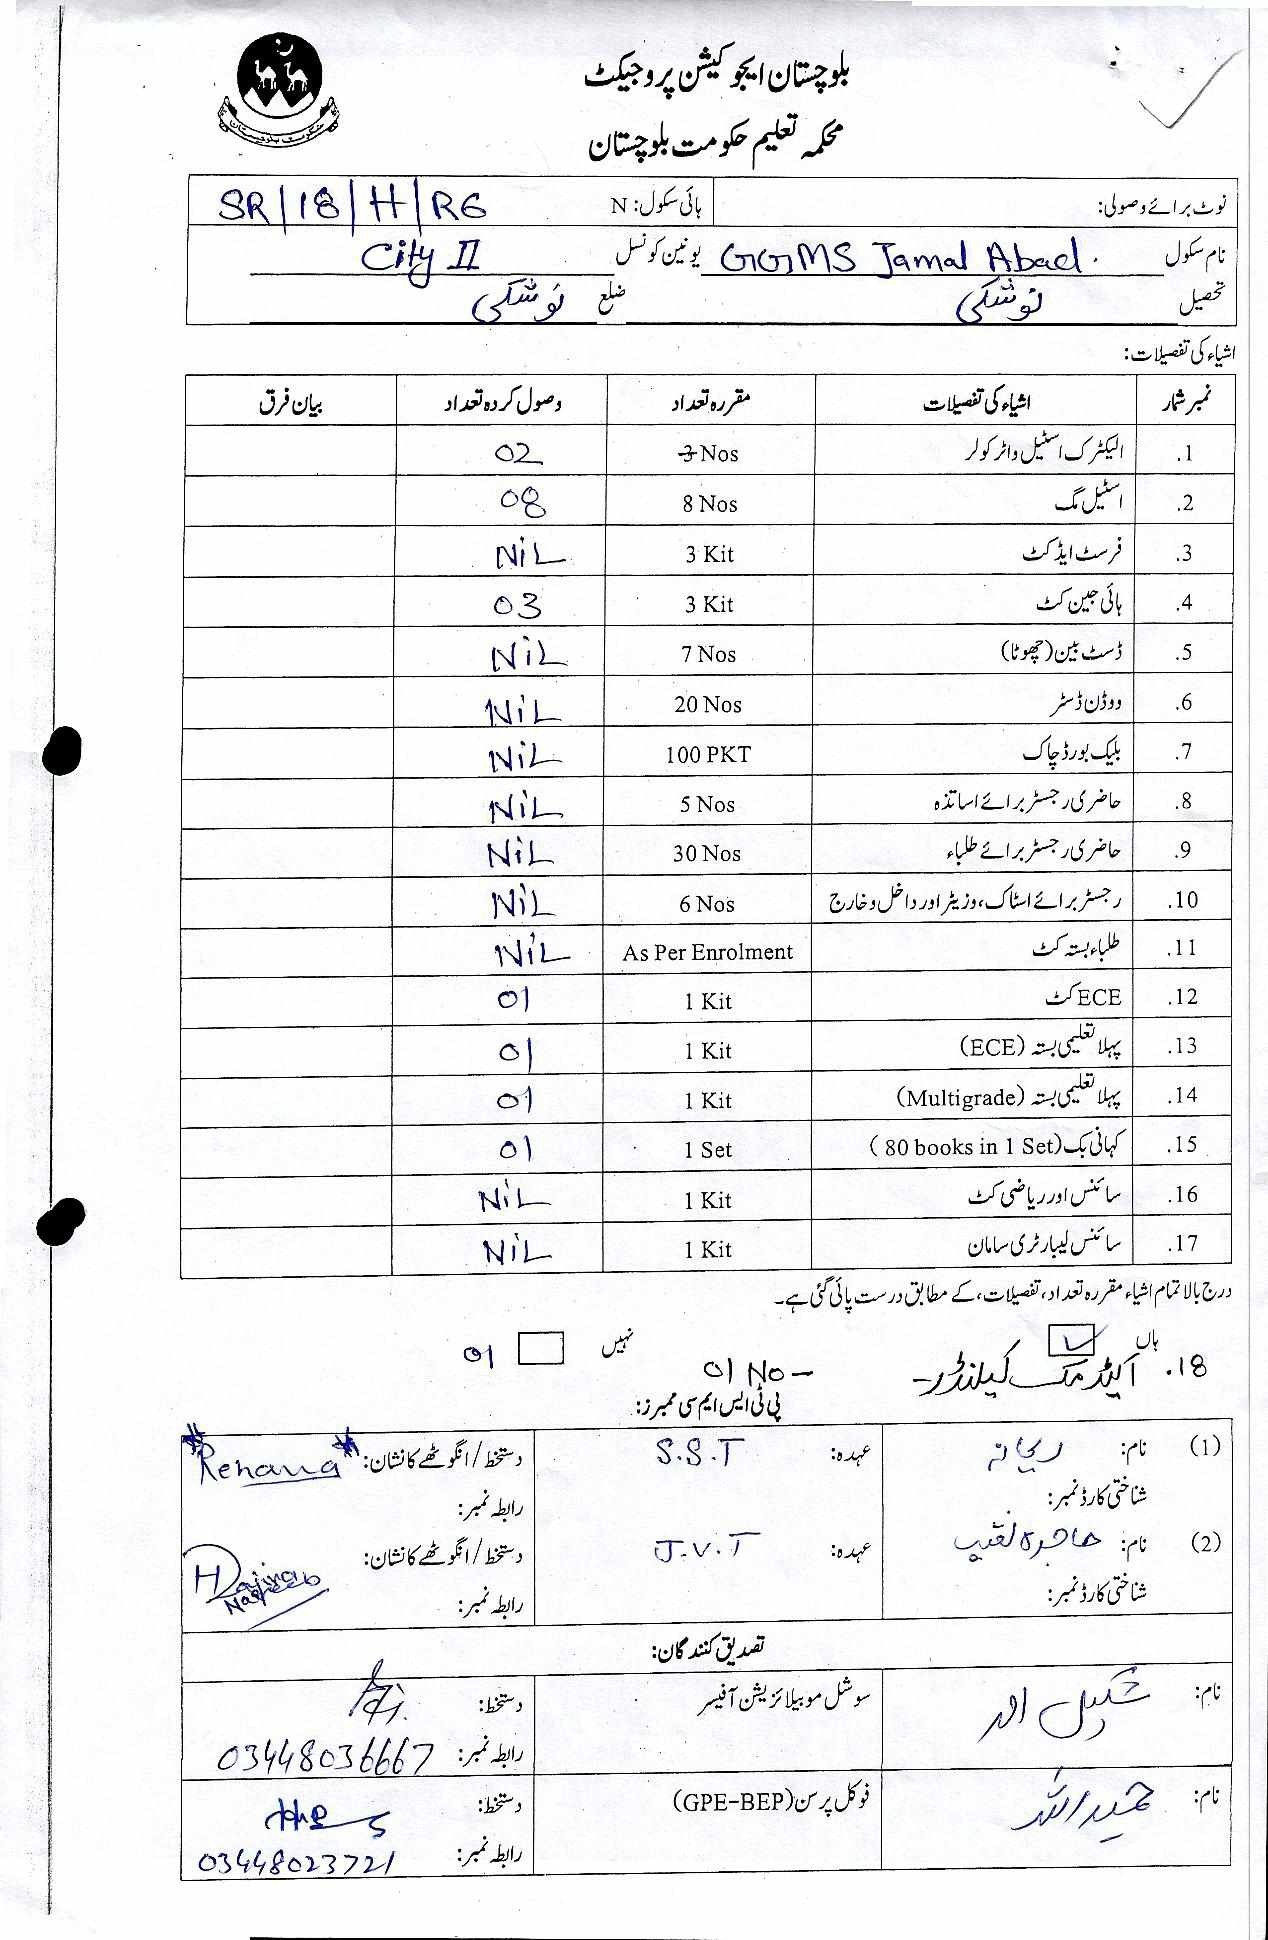 حکومت بلوچستان
بلوچستان ایجوکیشن پروجیکٹ
محکمہ تعلیم حکومت بلوچستان
نوٹ برائے وصولی: ہائی سکول: N SR/18/H/RG
نام سکول GGMS Jamal Abad. یونین کونسل City II
تحصیل نوشکی ضلع نوشکی
اشیاء کی تفصیلات:
نمبر شمار اشیاء کی تفصیلات مقررہ تعداد وصول کردہ تعداد بیان فرق
1. الیکٹرک اسٹیل واٹر کولر 3 Nos 02
2. اسٹیل مگ 8 Nos 08
3. فرسٹ ایڈ کٹ 3 Kit NiL
4. ہائی جین کٹ 3 Kit 03
5. ڈسٹ بین (چھوٹا) 7 Nos NiL
6. ووڈن ڈسٹر 20 Nos NiL
7. بلیک بورڈ چاک 100 PKT NiL
8. حاضری رجسٹر برائے اساتذہ 5 Nos NiL
9. حاضری رجسٹر برائے طلباء 30 Nos NiL
10. رجسٹر برائے اسٹاک، وزیٹر اور داخل و خارج 6 Nos NiL
11. طلباء بستہ کٹ As Per Enrolment NiL
12. ECE کٹ 1 Kit 01
13. پہلا تعلیمی بستہ (ECE) 1 Kit 01
14. پہلا تعلیمی بستہ (Multigrade) 1 Kit 01
15. کہانی بک (80 books in 1 Set) 1 Set 01
16. سائنس اور ریاضی کٹ 1 Kit NiL
17. سائنس لیبارٹری سامان 1 Kit NiL
درج بالا تمام اشیاء مقررہ تعداد، تفصیلات، کے مطابق درست پائی گئی ہے۔
ہاں ✓ نہیں 01
18. اکیڈمک کیلنڈر- 01 No-
پی ٹی ایس ایم سی ممبرز:
(1) نام: ریحانہ عہدہ: S.S.T دستخط/انگوٹھے کا نشان: Rehana
شناختی کارڈ نمبر: رابطہ نمبر:
(2) نام: حاجرہ نقیب عہدہ: J.V.T دستخط/انگوٹھے کا نشان: Hajira Naqeeb
شناختی کارڈ نمبر: رابطہ نمبر:
تصدیق کنندگان:
نام: شکیل احمد سوشل موبیلائزیشن آفیسر دستخط:
رابطہ نمبر: 03448036667
نام: حمید اللہ فوکل پرسن (GPE-BEP) دستخط:
رابطہ نمبر: 03448023721